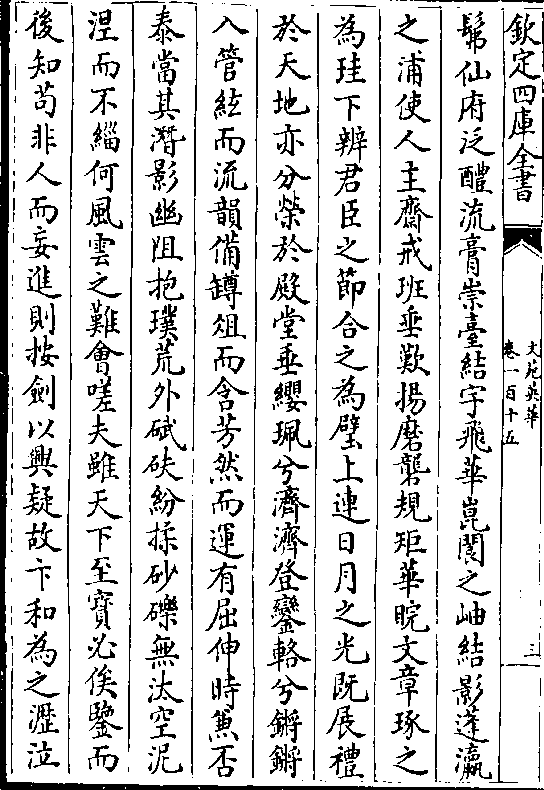 欽定四庫全書
文苑英華
卷一百十五
三
髴仙府泛醴流膏崇臺結宇飛華崑閬之岫結影蓬瀛
之浦使人主齋戒班垂歎揚磨礱規矩華睆文章琢之
為珪下辨君臣之節合之為璧上連日月之光既展禮
於天地亦分榮於殿堂垂纓珮兮濟濟登鑾輅兮鏘鏘
入管絃而流韻備罇俎而含芳然而運有屈伸時兼否
泰當其潛影幽阻抱璞荒外碔砆紛揉砂礫無汰空泥
涅而不緇何風雲之難會嗟夫雖天下至寳必俟鑒而
後知苟非人而妄進則按劍以興疑故卞和為之瀝泣